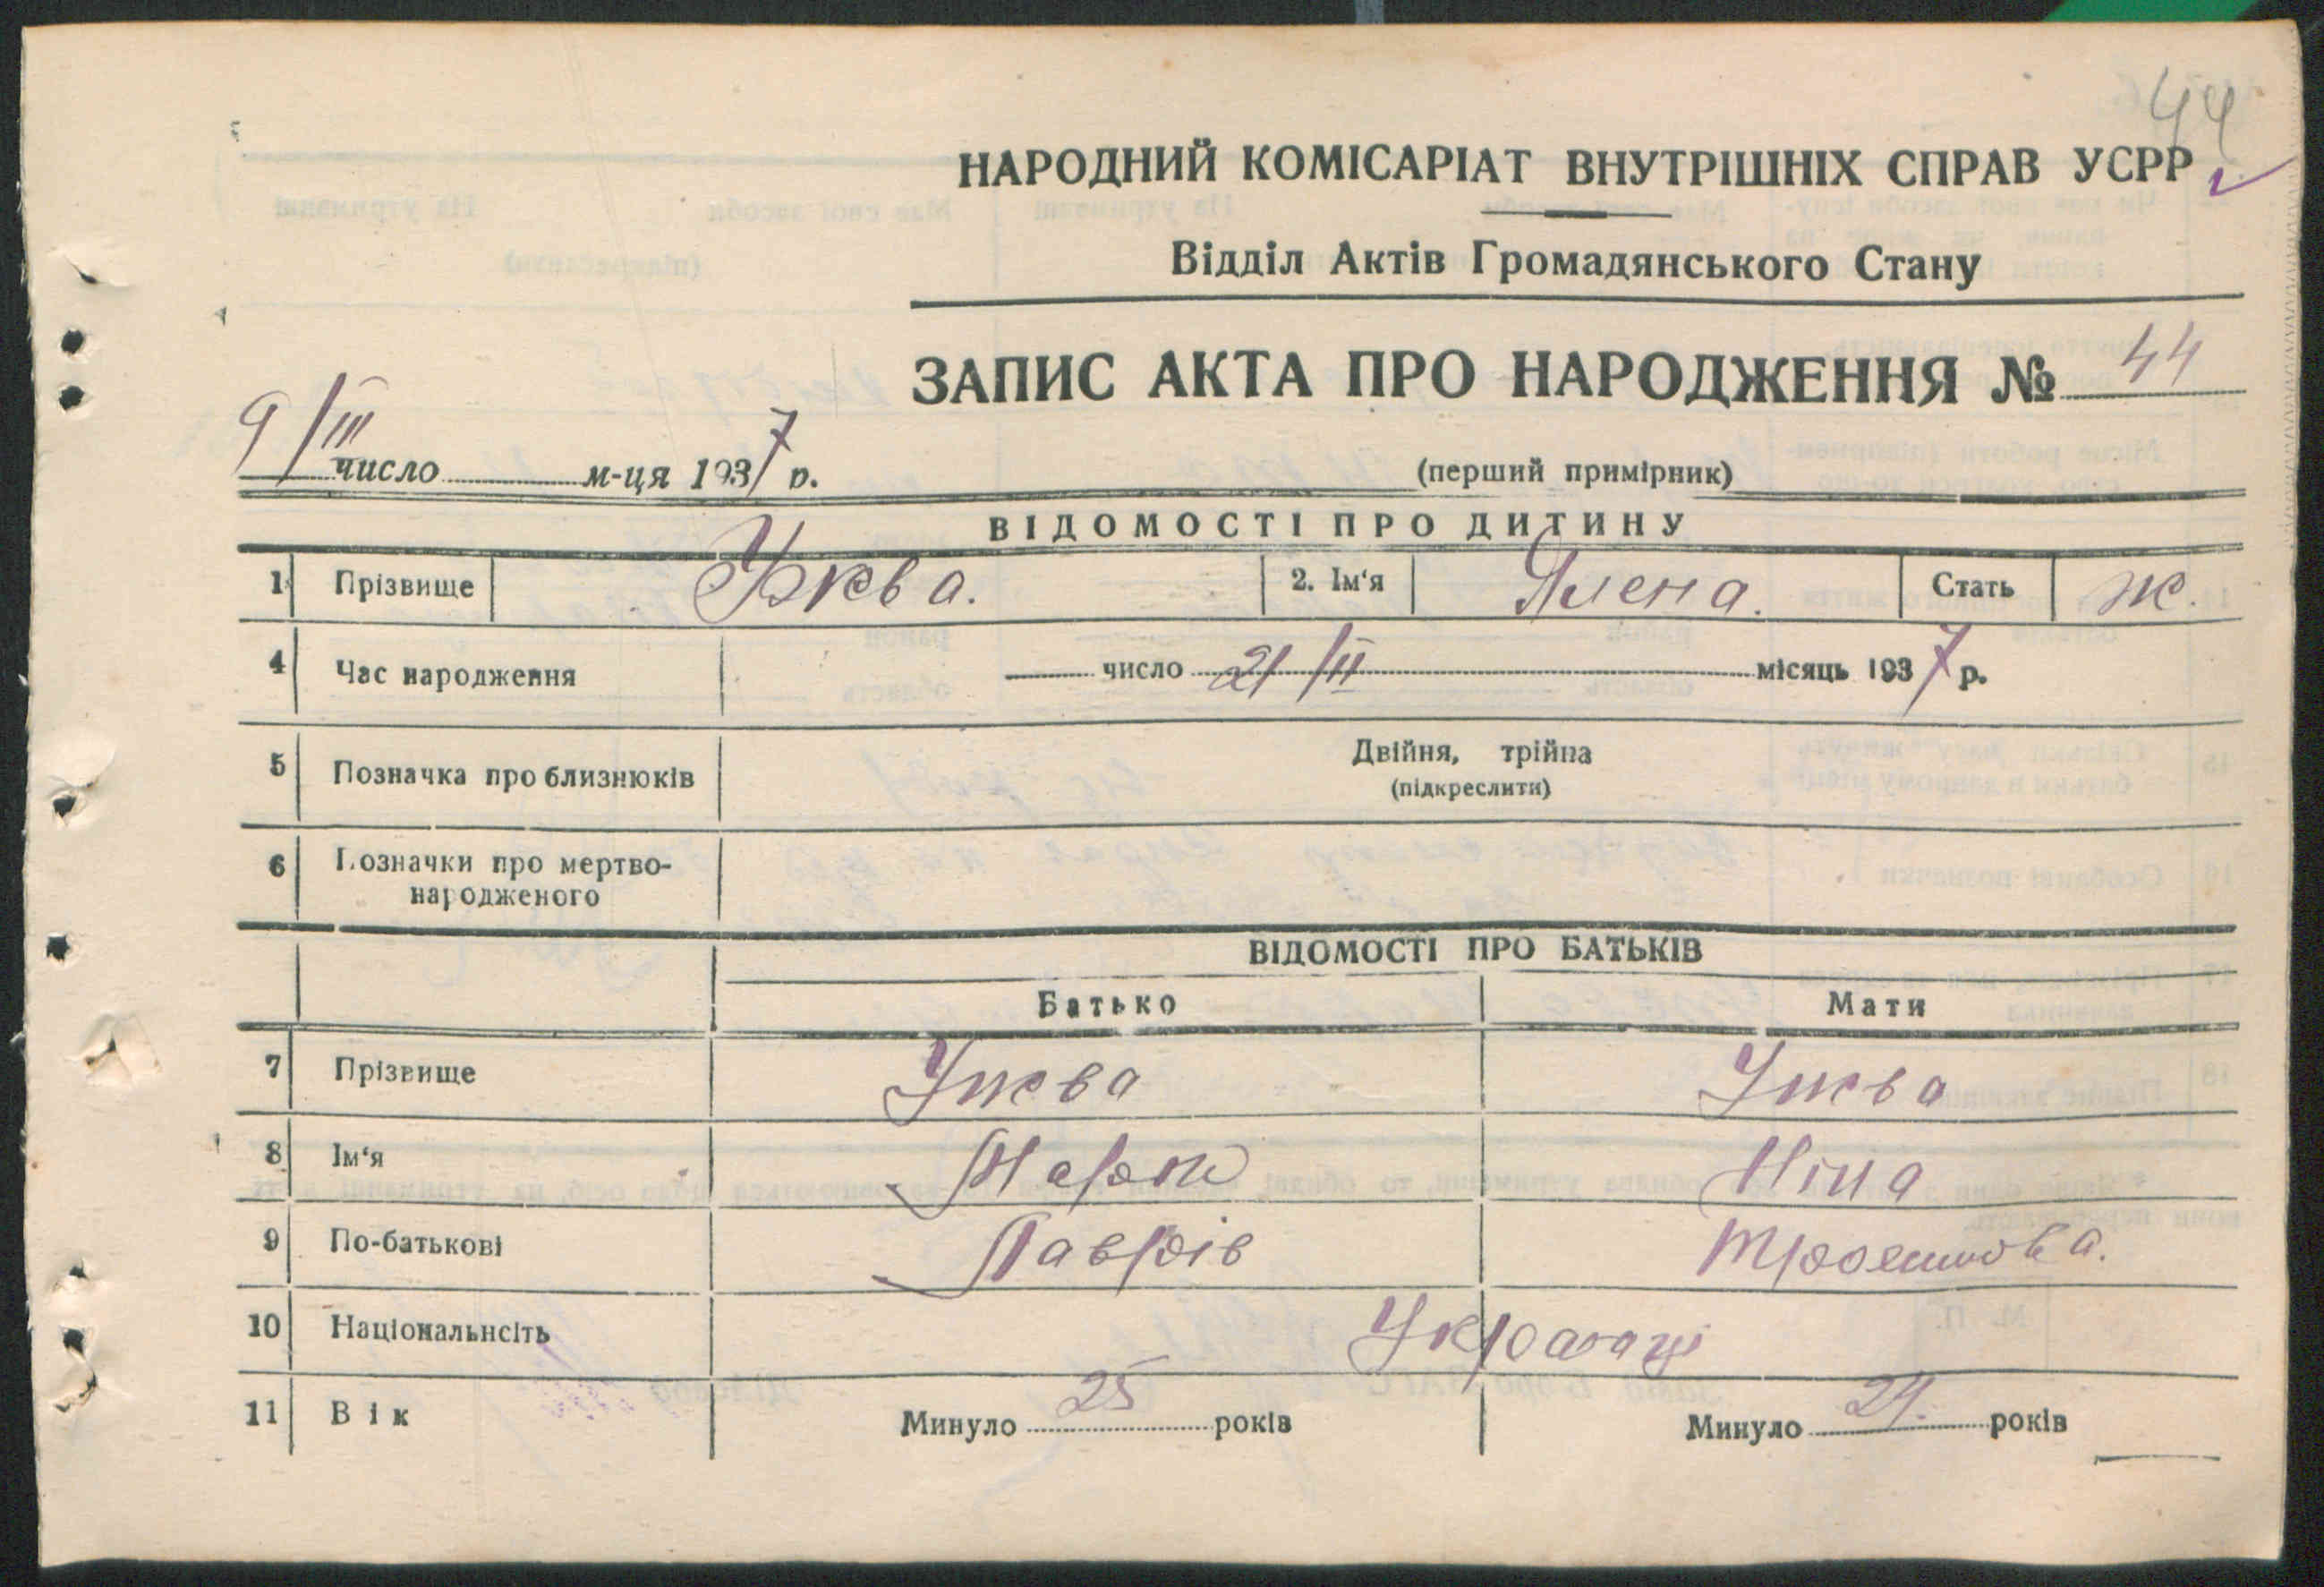 44
НАРОДНИЙ КОМІСАРІАТ ВНУТРІШНІХ СПРАВ УСРР
Відділ Актів Громадянського Стану
ЗАПИС АКТА ПРО НАРОДЖЕННЯ № 44
9/III число м-ця 1937 р.
(перший примірник)
ВІДОМОСТІ ПРО ДИТИНУ
1 Прізвище Ужва. 2. Ім'я Ялена. Стать ж.
4 Час народження число 21/II місяць 1937 р.
5 Позначка про близнюків Двійня, трійна
(підкреслити)
6 Позначки про мертво-
народженого
ВІДОМОСТІ ПРО БАТЬКІВ
Батько Мати
7 Прізвище Ужва Ужва
8 Ім'я Марко Ніна
9 По-батькові Лаврів
10 Національнсіть Українці
11 Вік Минуло 25 років Минуло 24 років